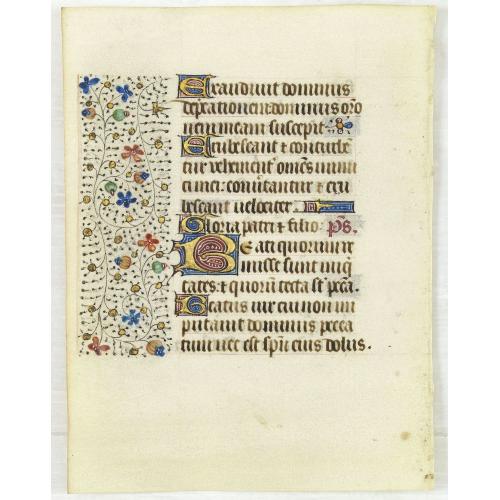 Exaudivit dominus
deprecationem: dominus oro
nem meam suscepit
Erubescant & conturbe
tur vehementer omes inimi
ci mei: convertantur & eru
bescant velociter.
Gloria patri & filio: ps.
Beati quorum re
misse sunt iniq
tates: & quoru tecta st pcca.
Beatus vir cui non im
putavit dominus pecca
tum nec est spu eius dolus.